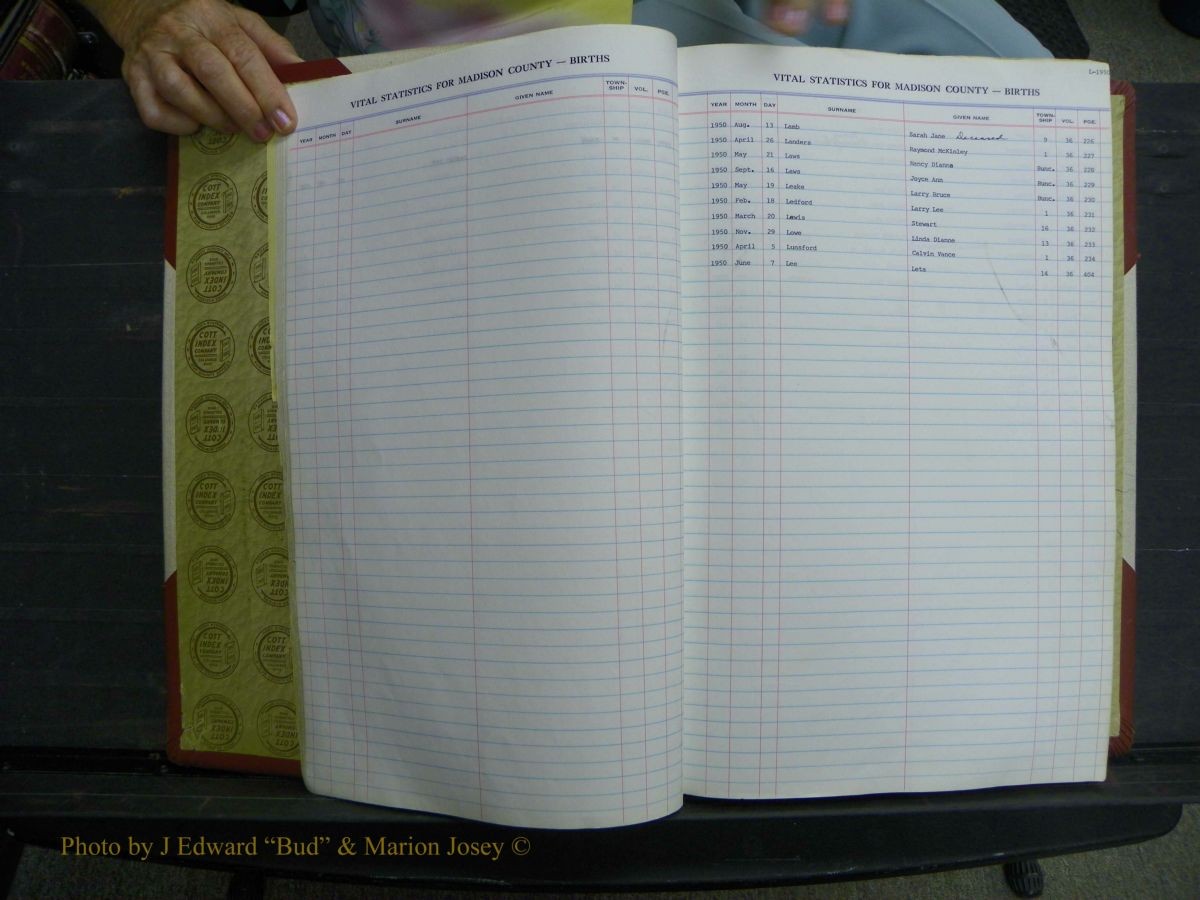 VITAL STATISTICS FOR MADISON COUNTY — BIRTHS
YEAR MONTH DAY SURNAME GIVEN NAME TOWN-SHIP VOL. PGE.
L-1950
VITAL STATISTICS FOR MADISON COUNTY — BIRTHS
YEAR MONTH DAY SURNAME GIVEN NAME TOWN-SHIP VOL. PGE.
1950 Aug. 13 Lamb Sarah Jane Deceased 9 36 226
1950 April 26 Landers Raymond McKinley 1 36 227
1950 May 21 Laws Nancy Dianne Bunc. 36 228
1950 Sept. 16 Laws Joyce Ann Bunc. 36 229
1950 May 19 Leake Larry Bruce Bunc. 36 230
1950 Feb. 18 Ledford Larry Lee 1 36 231
1950 March 20 Lewis Stewart 16 36 232
1950 Nov. 29 Lowe Linda Dianne 13 36 233
1950 April 5 Lunsford Calvin Vance 1 36 234
1950 June 7 Lee Leta 14 36 404
COTT INDEX COMPANY
Photo by J Edward “Bud” & Marion Josey ©